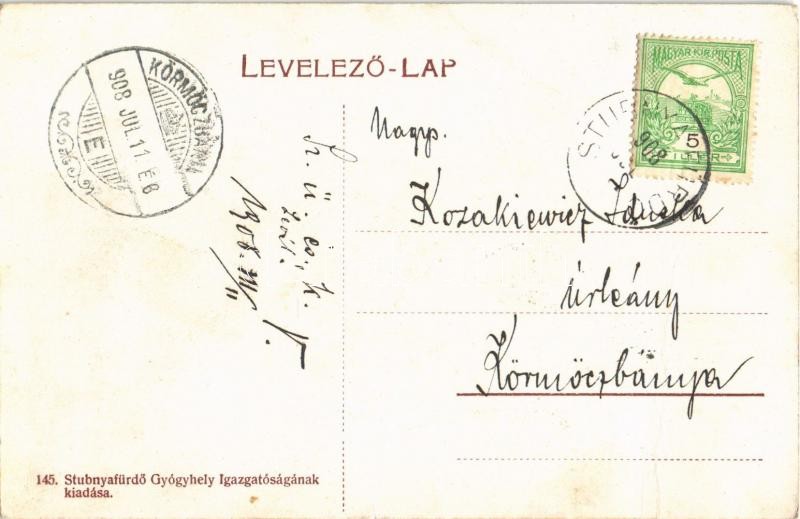 LEVELEZŐ-LAP
KÖRMÖCZBÁNYA
908 JUL. 11. É 8
E
MAGYAR KIR. POSTA
5
FILLÉR
908
Nagys.
Kozakiewicz Iduska
úrleány
Körmöczbánya
Sz. ü. és k.
1908. VII/11
145. Stubnyafürdő Gyógyhely Igazgatóságának
kiadása.